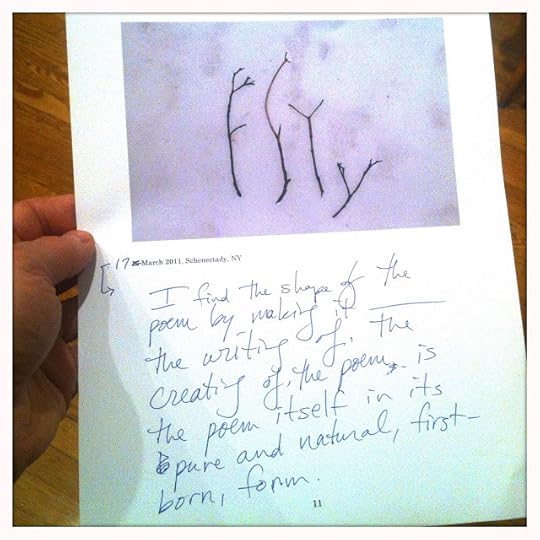 17 March 2011, Schenectady, NY
I find the shape of the
poem by making it
the writing of, the
creating of, the poem is
the poem itself in its
pure and natural, first-
born, form.
11